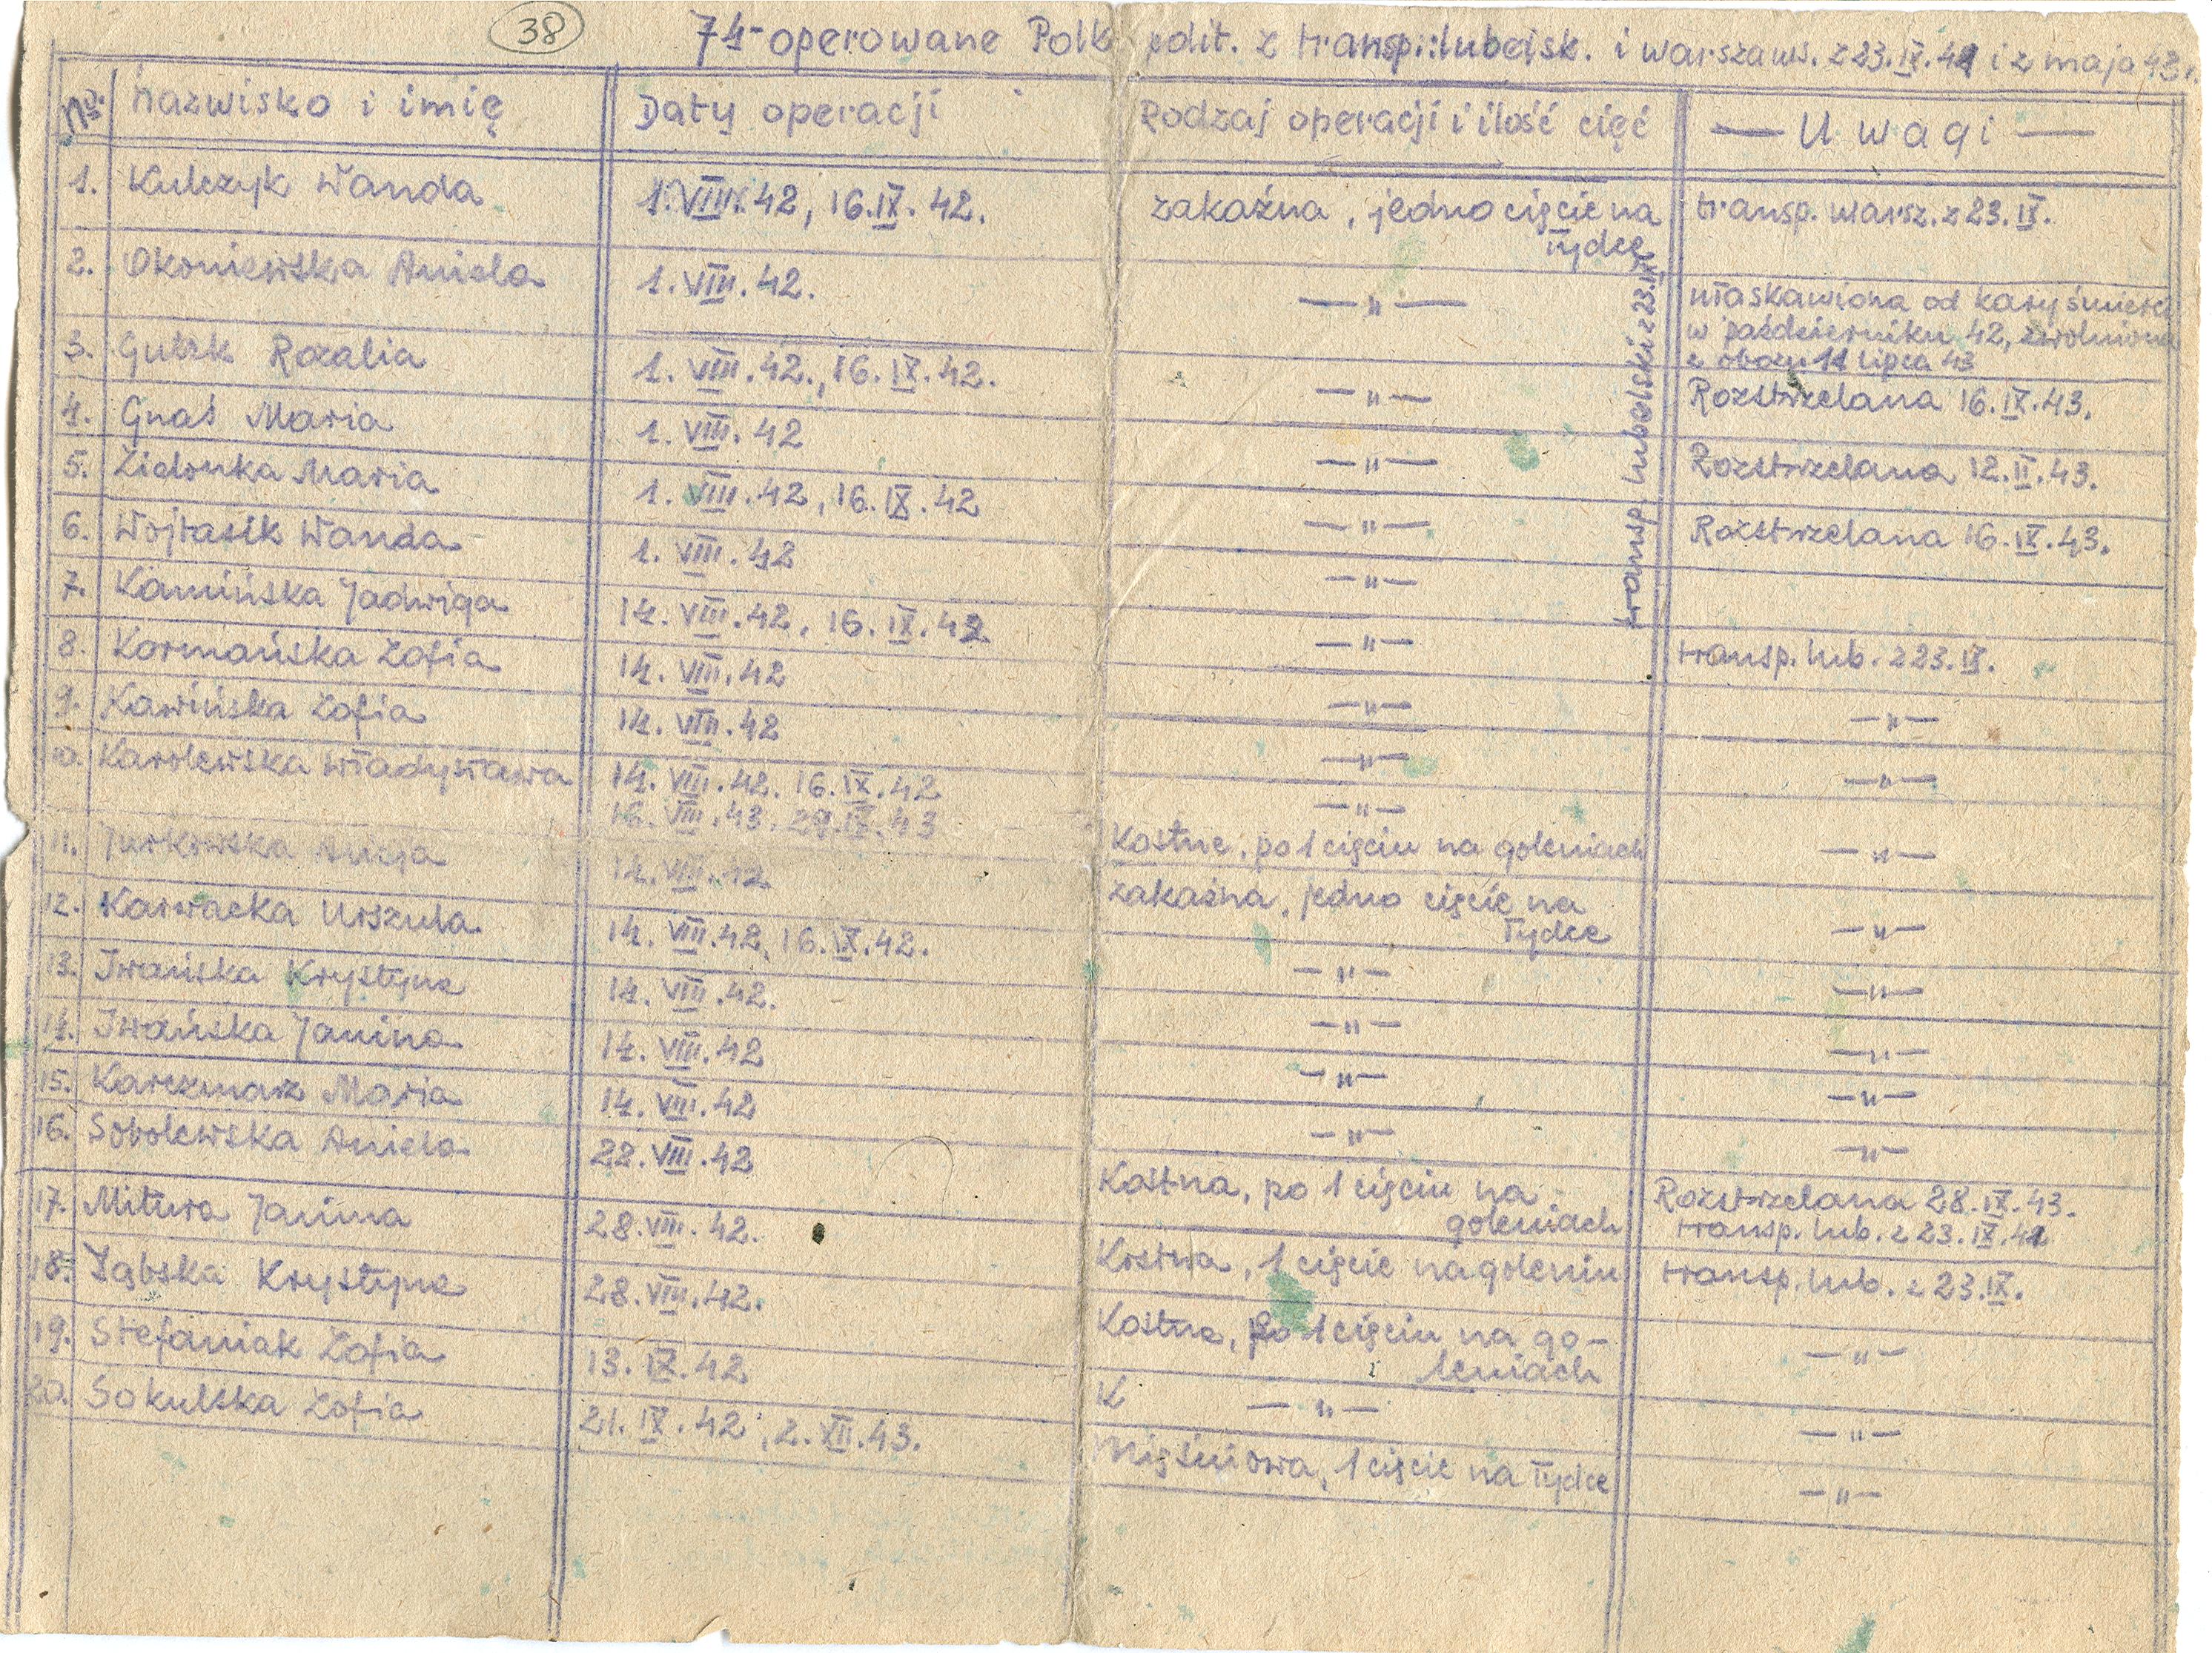 38
74-operowane Polk polit. z transp.:lubelsk. i warszaws. z 23.IX.41 i z maja 43r.
No. Nazwisko i imię Daty operacji Rodzaj operacji i ilość cięć — Uwagi —
1. Kulczyk Wanda 1.VIII.42, 16.IX.42. zakaźna, jedno cięcie na łydce transp. warsz. z 23.IX.
2. Okoniewska Aniela 1.VIII.42. —"— ułaskawiona od kary śmierci
w październiku 42, zwolniona
z obozu 11 lipca 43
3. Gutek Rozalia 1.VIII.42., 16.IX.42. —"— Rozstrzelana 16.IX.43.
4. Gnaś Maria 1.VIII.42 —"— Rozstrzelana 12.II.43.
5. Zielonka Maria 1.VIII.42, 16.IX.42 —"— Rozstrzelana 16.IX.43.
6. Wojtasik Wanda 1.VIII.42 —"—
transp. lubelski z 23.IX
7. Kamińska Jadwiga 14.VIII.42, 16.IX.42 —"— transp. lub. z 23.IX.
8. Kormańska Zofia 14.VIII.42 —"— —"—
9. Kawińska Zofia 14.VIII.42 —"— —"—
10. Karolewska Władysława 14.VIII.42. 16.IX.42 —"—
16.VIII.43. 29.IX.43 Kostne, po 1 cięciu na goleniach —"—
11. Jurkowska Alicja 14.VIII.42 zakaźna, jedno cięcie na
łydce —"—
12. Karwacka Urszula 14.VIII.42, 16.IX.42. —"— —"—
13. Iwańska Krystyna 14.VIII.42. —"— —"—
14. Iwańska Janina 14.VIII.42 —"— —"—
15. Karczmarz Maria 14.VIII.42 —"— —"—
16. Sobolewska Aniela 22.VIII.42 Kostna, po 1 cięciu na
goleniach Rozstrzelana 28.IX.43.
transp. lub. z 23.IX.41
17. Mitura Janina 28.VIII.42. Kostna, 1 cięcie na goleniu transp. lub. z 23.IX.
18. Dąbska Krystyna 28.VIII.42. Kostna, po 1 cięciu na go-
leniach —"—
19. Stefaniak Zofia 13.IX.42 K —"— —"—
20. Sokulska Zofia 21.IX.42, 2.XII.43. Mięśniowa, 1 cięcie na łydce —"—